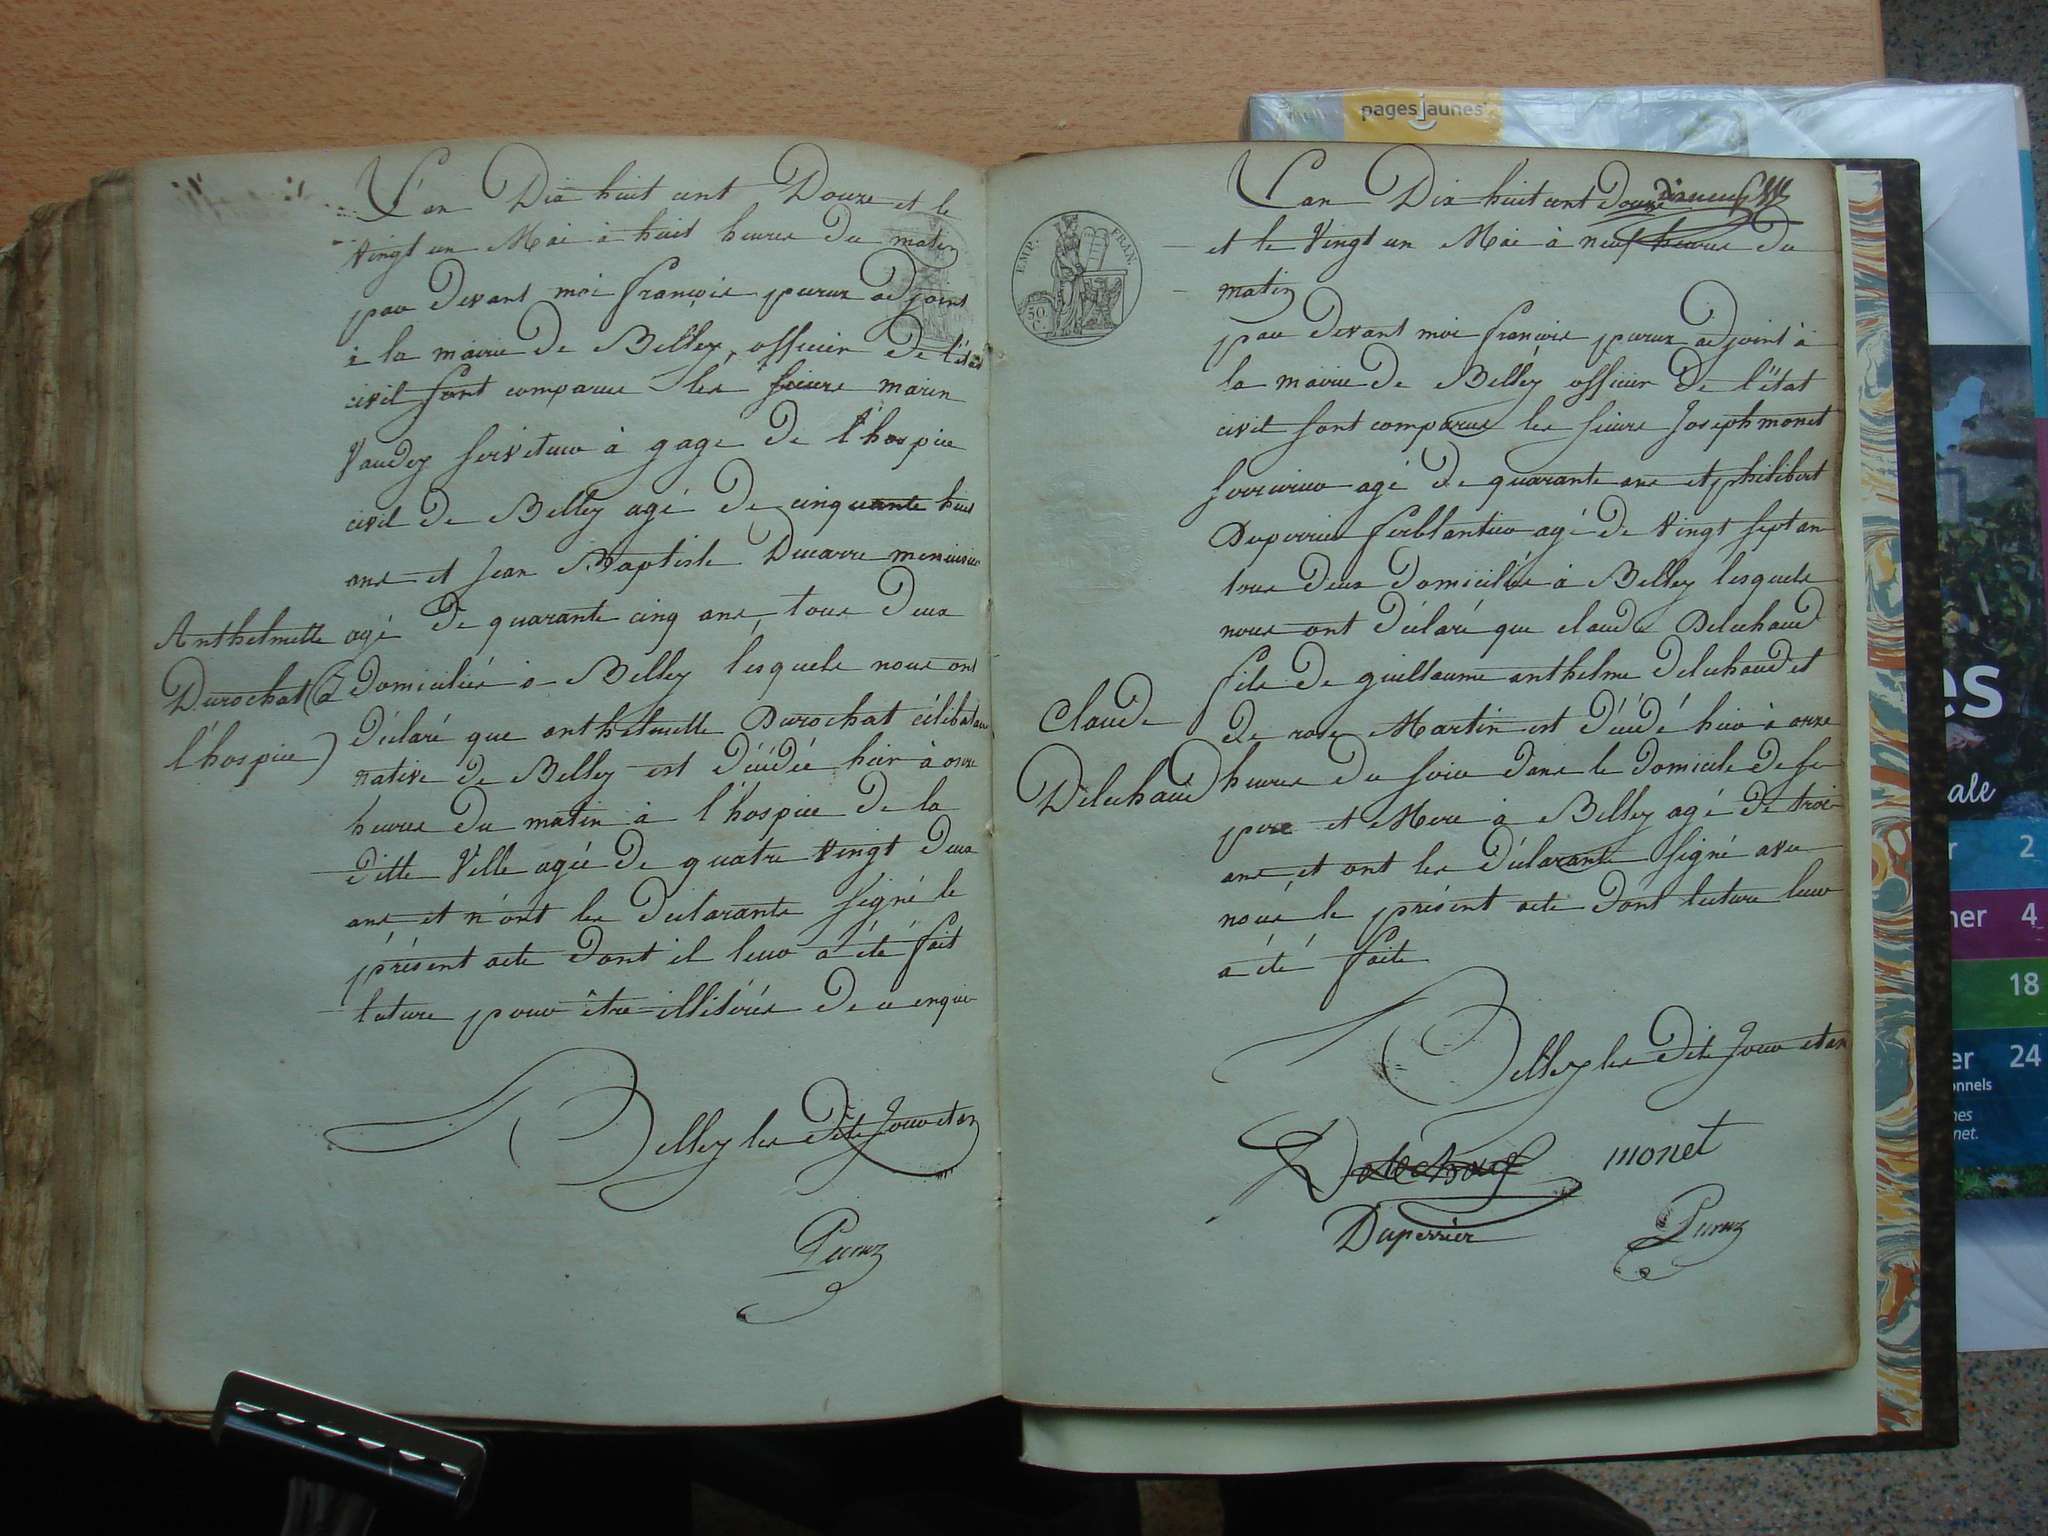 L'an Dix huit cent Douze et le
vingt un Mai à huit heures du matin
par devant moi françois peruz adjoint
à la mairie de Belley, officier de l'état
civil sont comparus les sieurs marin
Vaudey serviteur à gage de l'hospice
civil de Belley agé de cinquante huit
ans et Jean Baptiste Ducarre menuisier
agé de quarante cinq ans, tous deux
domiciliés à Belley lesquels nous ont
déclaré que anthelmette Durochat célibataire
native de Belley est décédée hier à onze
heures du matin à l'hospice de la
ditte Ville agée de quatre vingt deux
ans, et n'ont les déclarants signé le
présent acte dont il leur a été fait
lecture pour être illitérés de ce enquis
Belley les dits Jour et an
Peruz
Anthelmette
Durochat (à
l'hospice)
EMP. FRAN.
50 C.
L'an Dix huit cent douze dixneuf
et le Vingt un Mai à neuf heures du
matin
par devant moi françois peruz adjoint à
la mairie de Belley officier de l'état
civil sont comparus les sieurs Joseph monet
serrurier agé de quarante ans et philibert
Duperrier ferblantier agé de vingt sept ans
tous deux domiciliés à Belley lesquels
nous ont déclaré que claude Delechaud
fils de guillaume anthelme delechaud et
de rose Martin est décédé hier à onze
heures du soir dans le domicile de se
pere et Mere à Belley agé de trois
ans, et ont les déclarants signé avec
nous le présent acte dont lecture leur
a été faite
Belley les dits Jour et an
Dalechaud monet
Duperrier Peruz
Claude
Delechaud
pagesjaunes
es
ale
2
ner 4
18
er 24
onnels
nes
net.